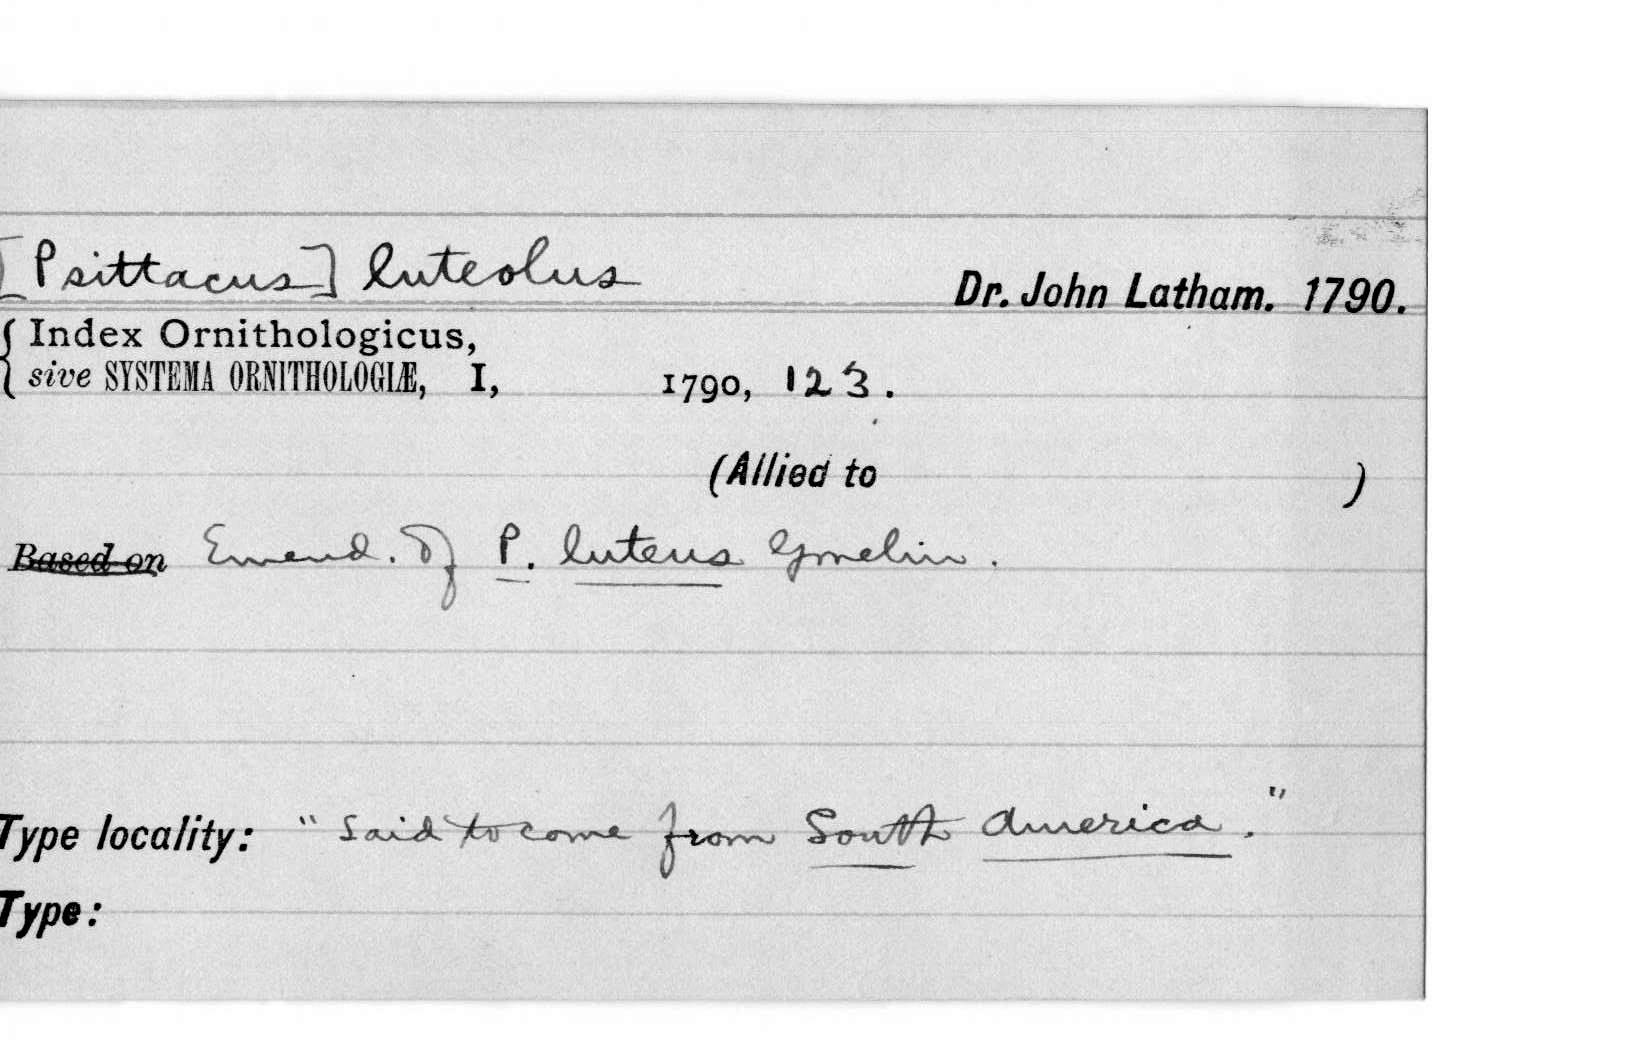 [Psittacus] luteolus
Dr. John Latham. 1790.
Index Ornithologicus,
sive SYSTEMA ORNITHOLOGIÆ, I, 1790, 123.
(Allied to )
Based on Emend. of P. luteus Gmelin.
Type locality: "Said to come from South America."
Type: